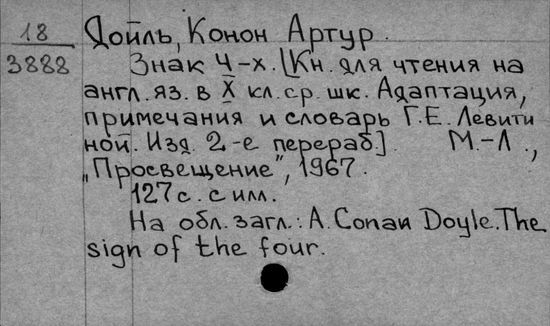 18
3888
Дойль, Конон Артур.
Знак 4-х. [Кн. для чтения на
англ. яз. в X кл. ср. шк. Адаптация,
примечания и словарь Г. Е. Левити
ной. Изд. 2-е перераб]. М.-Л.,
„Просвещение", 1967.
127 с. с илл.
На обл. загл.: A. Conan Doyle. The
sign of the four.